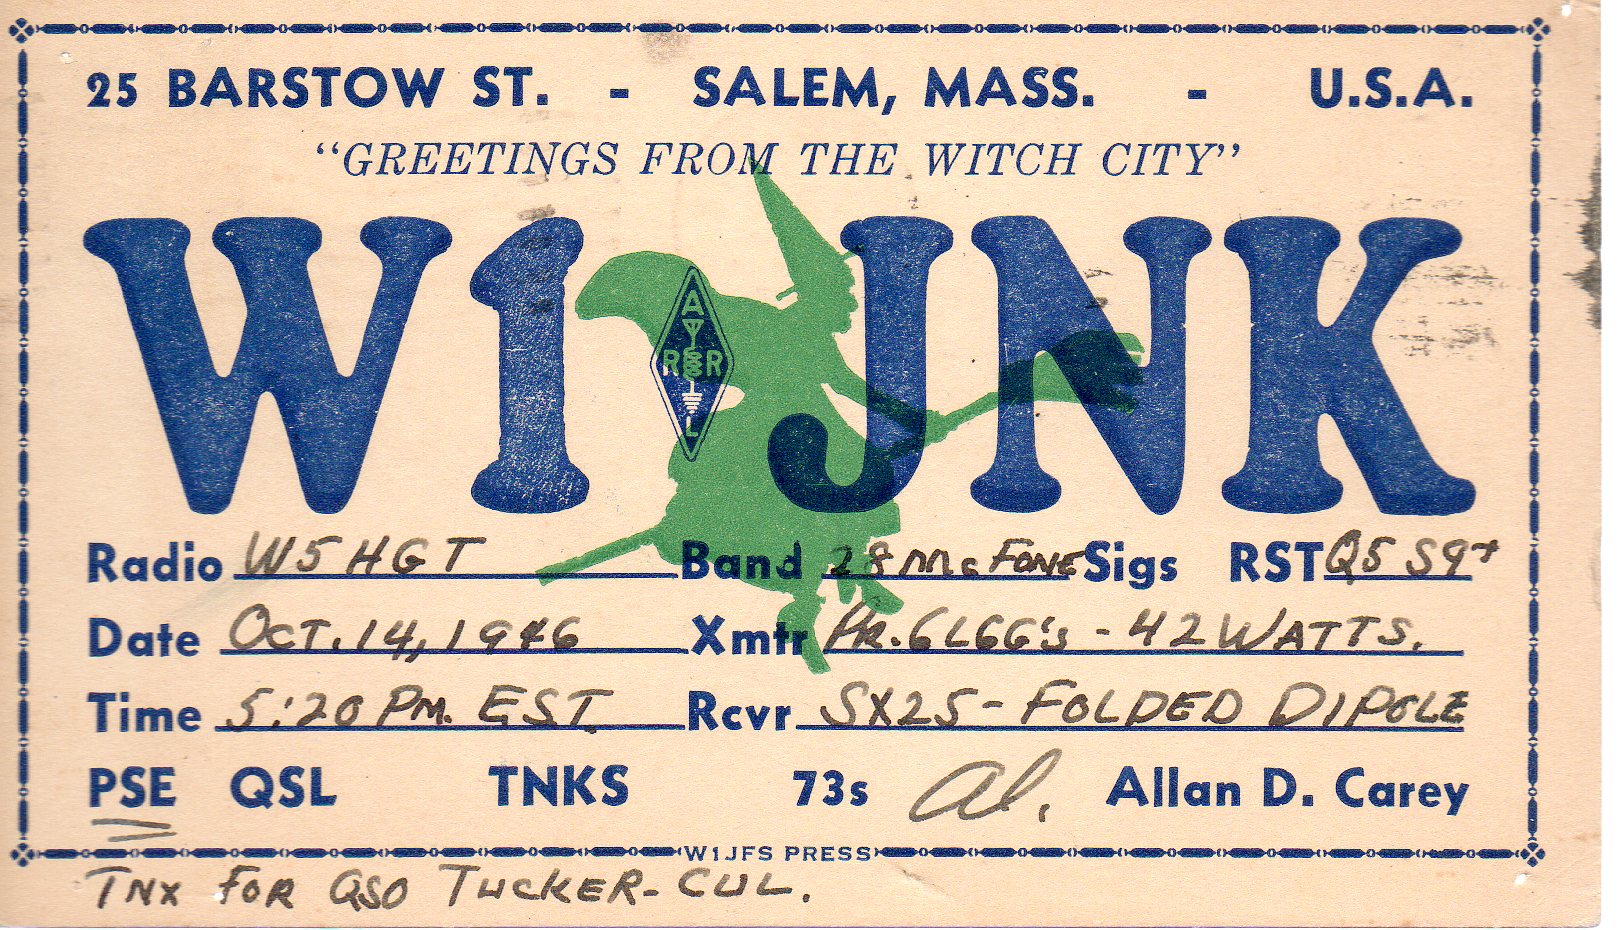 25 BARSTOW ST. - SALEM, MASS. - U.S.A.
"GREETINGS FROM THE WITCH CITY"
W1JNK
A
R R
L
Radio W5HGT Band 28 Mc FONE Sigs RST Q5 S9+
Date OCT. 14, 1946 Xmtr PR. 6L6G's - 42 WATTS.
Time 5:20 PM. EST Rcvr SX25 - FOLDED DIPOLE
PSE QSL TNKS 73s Al. Allan D. Carey
W1JFS PRESS
TNX FOR QSO TUCKER - CUL.